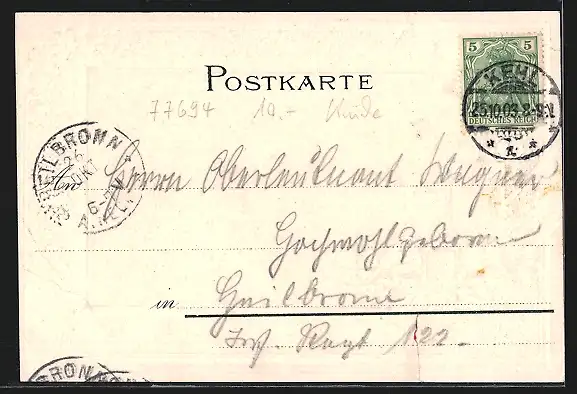 5 5
DEUTSCHES REICH
KEHL
25.10.03. 8-9.N
* 1. *
POSTKARTE
77694 10.- Kunde
HEILBRONN
26
OKT
6-7V
An Herrn Oberleutnant Wagner
Hochwohlgeboren
in Heilbronn
Inf. Regt 122.
BRONN